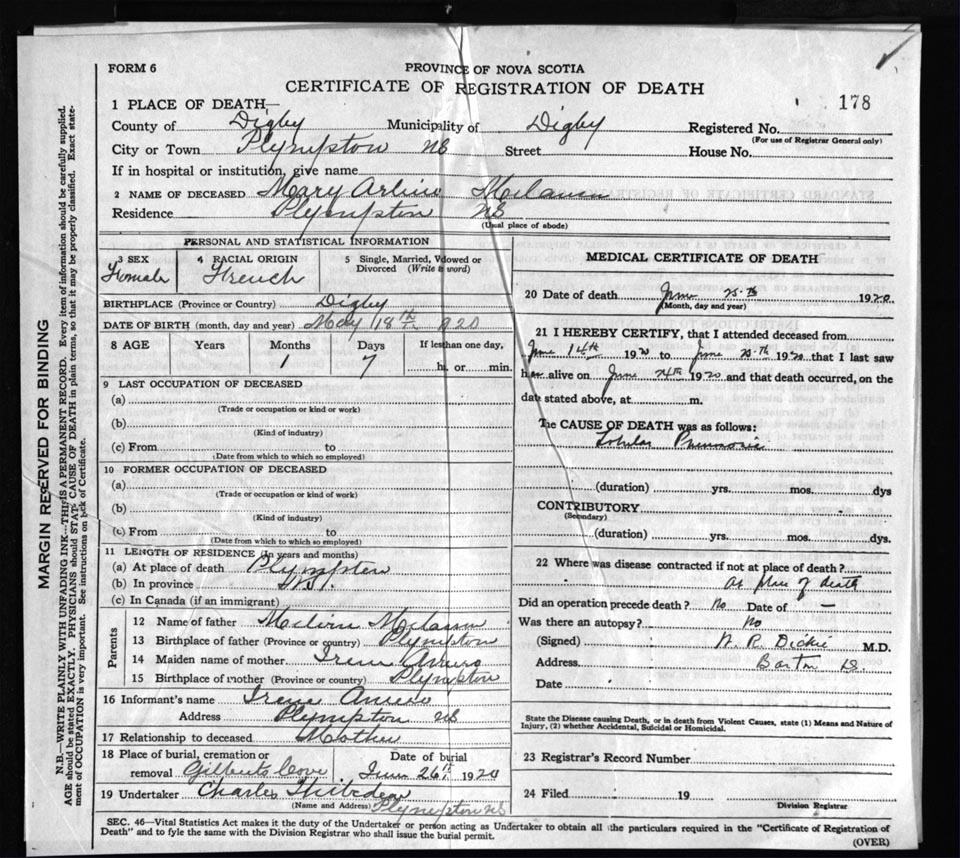 FORM 6
PROVINCE OF NOVA SCOTIA
CERTIFICATE OF REGISTRATION OF DEATH
178
1 PLACE OF DEATH—
County of Digby Municipality of Digby Registered No.
(For use of Registrar General only)
City or Town Plympton NS Street House No.
If in hospital or institution, give name
2 NAME OF DECEASED Mary
Residence Plympton NS
(Usual place of abode)
PERSONAL AND STATISTICAL INFORMATION
3 SEX Female
4 RACIAL ORIGIN French
5 Single, Married, Widowed or Divorced (Write the word)
BIRTHPLACE (Province or Country) Digby
DATE OF BIRTH (month, day and year) May 18th 1920
8 AGE Years Months Days If less than one day,
1 7 hr. or min.
9 LAST OCCUPATION OF DECEASED
(a)
(Trade or occupation or kind or work)
(b)
(Kind of industry)
(c) From to
(Date from which to which so employed)
10 FORMER OCCUPATION OF DECEASED
(a)
(Trade or occupation or kind of work)
(b)
(Kind of industry)
(c) From to
(Date from which to which so employed)
11 LENGTH OF RESIDENCE (In years and months)
(a) At place of death Plympton
(b) In province N.S.
(c) In Canada (if an immigrant)
Parents
12 Name of father
13 Birthplace of father (Province or country) Plympton
14 Maiden name of mother Irene
15 Birthplace of mother (Province or country) Plympton
16 Informant's name Irene
Address Plympton NS
17 Relationship to deceased Mother
18 Place of burial, cremation or removal Gilberts Cove
Date of burial June 26th 1920
19 Undertaker Charles Thibedeau
(Name and Address) Plympton NS
MEDICAL CERTIFICATE OF DEATH
20 Date of death June 25th 1920
(Month, day and year)
21 I HEREBY CERTIFY, that I attended deceased from
June 14th 1920 to June 25th 1920 that I last saw
her alive on June 24th 1920 and that death occurred, on the
date stated above, at m.
The CAUSE OF DEATH was as follows:
Lobular Pneumonia
(duration) yrs. mos. dys
CONTRIBUTORY
(Secondary)
(duration) yrs. mos. dys.
22 Where was disease contracted if not at place of death?
At place of death
Did an operation precede death? No Date of —
Was there an autopsy? No
(Signed) W. R. Dickie M.D.
Address Barton NS
Date
State the Disease causing Death, or in death from Violent Causes, state (1) Means and Nature of
Injury, (2) whether Accidental, Suicidal or Homicidal.
23 Registrar's Record Number
24 Filed 19
Division Registrar
SEC. 46—Vital Statistics Act makes it the duty of the Undertaker or person acting as Undertaker to obtain all the particulars required in the "Certificate of Registration of
Death" and to fyle the same with the Division Registrar who shall issue the burial permit.
(OVER)
MARGIN RESERVED FOR BINDING
N.B.—WRITE PLAINLY WITH UNFADING INK—THIS IS A PERMANENT RECORD. Every item of information should be carefully supplied.
AGE should be stated EXACTLY. PHYSICIANS should STATE CAUSE OF DEATH in plain terms, so that it may be properly classified. Exact state-
ment of OCCUPATION is very important. See instructions on back of Certificate.